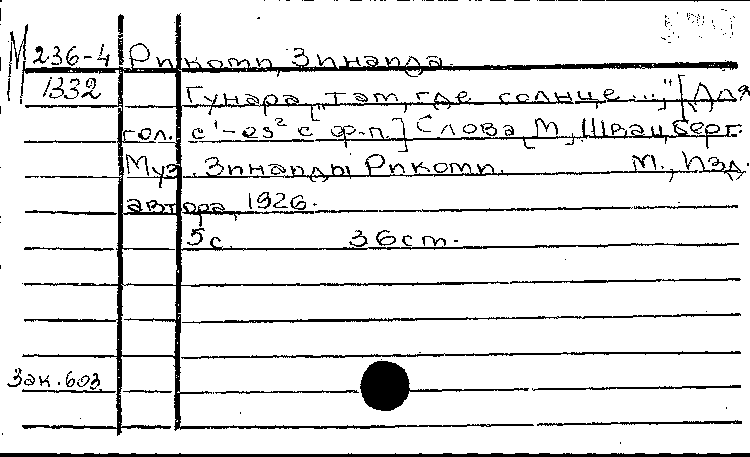 М 236-4 Рикоми, Зинаида.
1332 Гунара „Там, где солнце...", [Для
гол. c¹-es² с ф-п.] Слова [М. Швацберг.
Муз. Зинаиды Рикоми. М., Изд.
автора, 1926.
5 с. 36 см.
Зак. 603